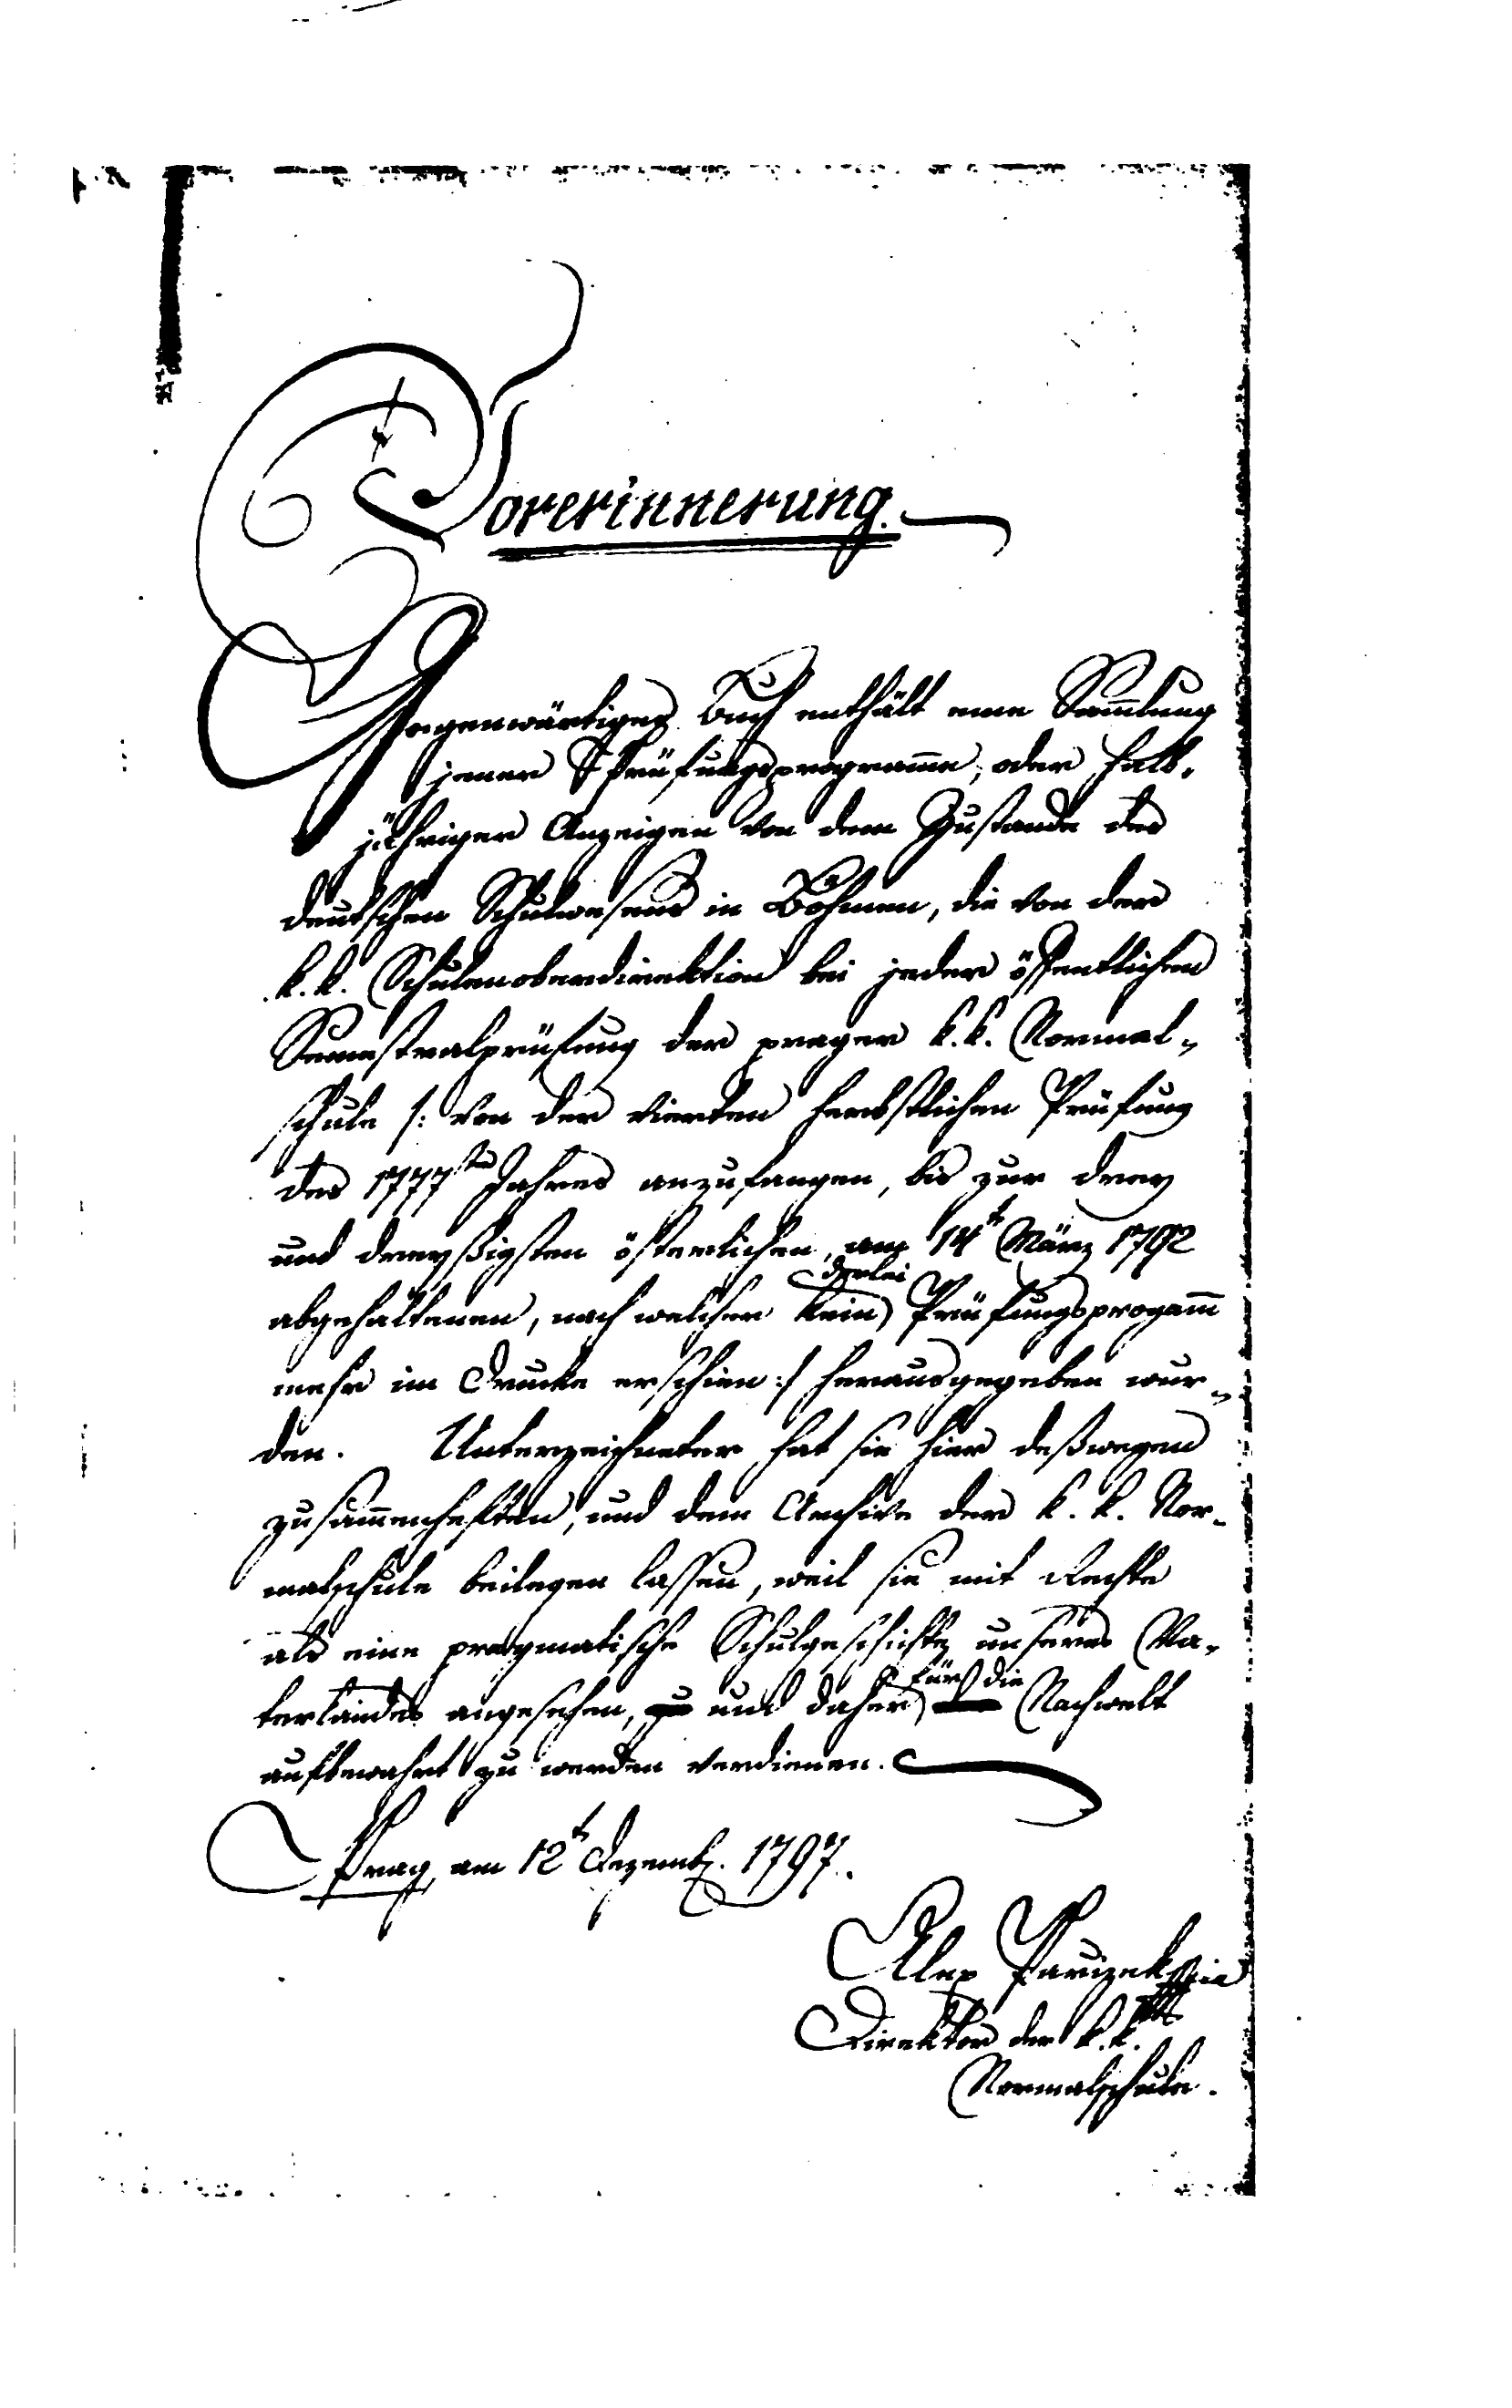 Vorerinnerung.
Gegenwärtiges Buch enthält eine Sam̅lung
jener Prüfungsprogram̅e, oder halb-
jähriger Anzeigen von dem Zustande des
deutschen Schulwesens in Böhmen, die von der
k. k. Schulenoberdirektion bei jeder öffentlichen
Semestralprüfung der prager k. k. Normal-
schule /: von der vierten herbstlichen Prüfung
des 1777sten Jahres anzufangen, bis zur drey
und dreyßigsten österlichen, am 14t März 1792
abgehaltenen, nach welcher kein derlei Prüfungsprogam̅
mehr im Drucke erschien :/ herausgegeben wur-
den. Unterzeichneter hat sie hier deßwegen
zusam̅enheften, und dem Archive der k. k. Nor-
malschule beilegen lassen, weil sie mit Rechte
als eine pragmatische Schulgeschichte unseres Va-
terlandes angesehen, und daher für die Nachwelt
aufbewahrt zu werden verdienen.
Prag, am 12t Dezemb. 1797.
Alex Parizek
Direktor der k. k.
Normalschule.